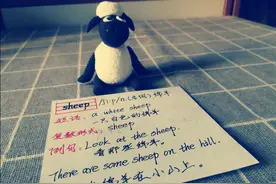 sheep /ʃiːp/ n.(名词) 绵羊
短语: a white sheep
一只白色的绵羊
复数形式: sheep
例句: Look at the sheep.
看那些绵羊。
There are some sheep on the hill.
绵羊在小山上。